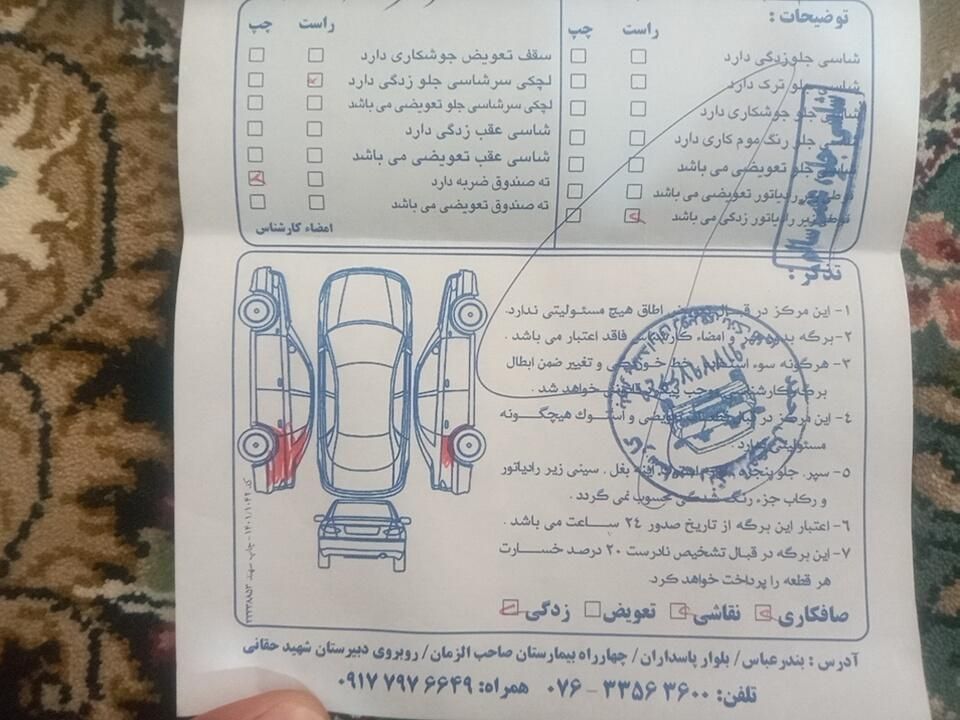 توضیحات :
راست چپ
شاسی جلو زدگی دارد
شاسی جلو ترک دارد
شاسی جلو جوشکاری دارد
جلو رنگ موم کاری دارد
جلو تعویضی می باشد
رادیاتور تعویضی می باشد
زیر رادیاتور زدگی می باشد
راست چپ
سقف تعویض جوشکاری دارد
لچکی سرشاسی جلو زدگی دارد
لچکی سرشاسی جلو تعویضی می باشد
شاسی عقب زدگی دارد
شاسی عقب تعویضی می باشد
ته صندوق ضربه دارد
ته صندوق تعویضی می باشد
امضاء کارشناس
تذکر :
۱- این مرکز در اطاق هیچ مسئولیتی ندارد.
۲- برگه و امضاء فاقد اعتبار می باشد .
۳- هرگونه سوء خط و تغییر ضمن ابطال
خواهد شد .
۴- این مرکز در و استوک هیچگونه
مسئولیتی ندارد .
۵- سپر. جلو پنجره بغل . سینی زیر رادیاتور
و رکاب جزء رنگ محسوب نمی گردد .
۶- اعتبار این برگه از تاریخ صدور ۲۴ ساعت می باشد .
۷- این برگه در قبال تشخیص نادرست ۲۰ درصد خسارت
هر قطعه را پرداخت خواهد کرد.
صافکاری نقاشی تعویض زدگی
کد ۱۴۰۱/۱۰۴۲ - چاپ سهند ۲۲۲۳۸۸۵۳
آدرس : بندرعباس/ بلوار پاسداران/ چهارراه بیمارستان صاحب الزمان/ روبروی دبیرستان شهید حقانی
تلفن: ۳۶۰۰ ۳۳۵۶ - ۰۷۶ همراه: ۶۶۴۹ ۷۹۷ ۰۹۱۷